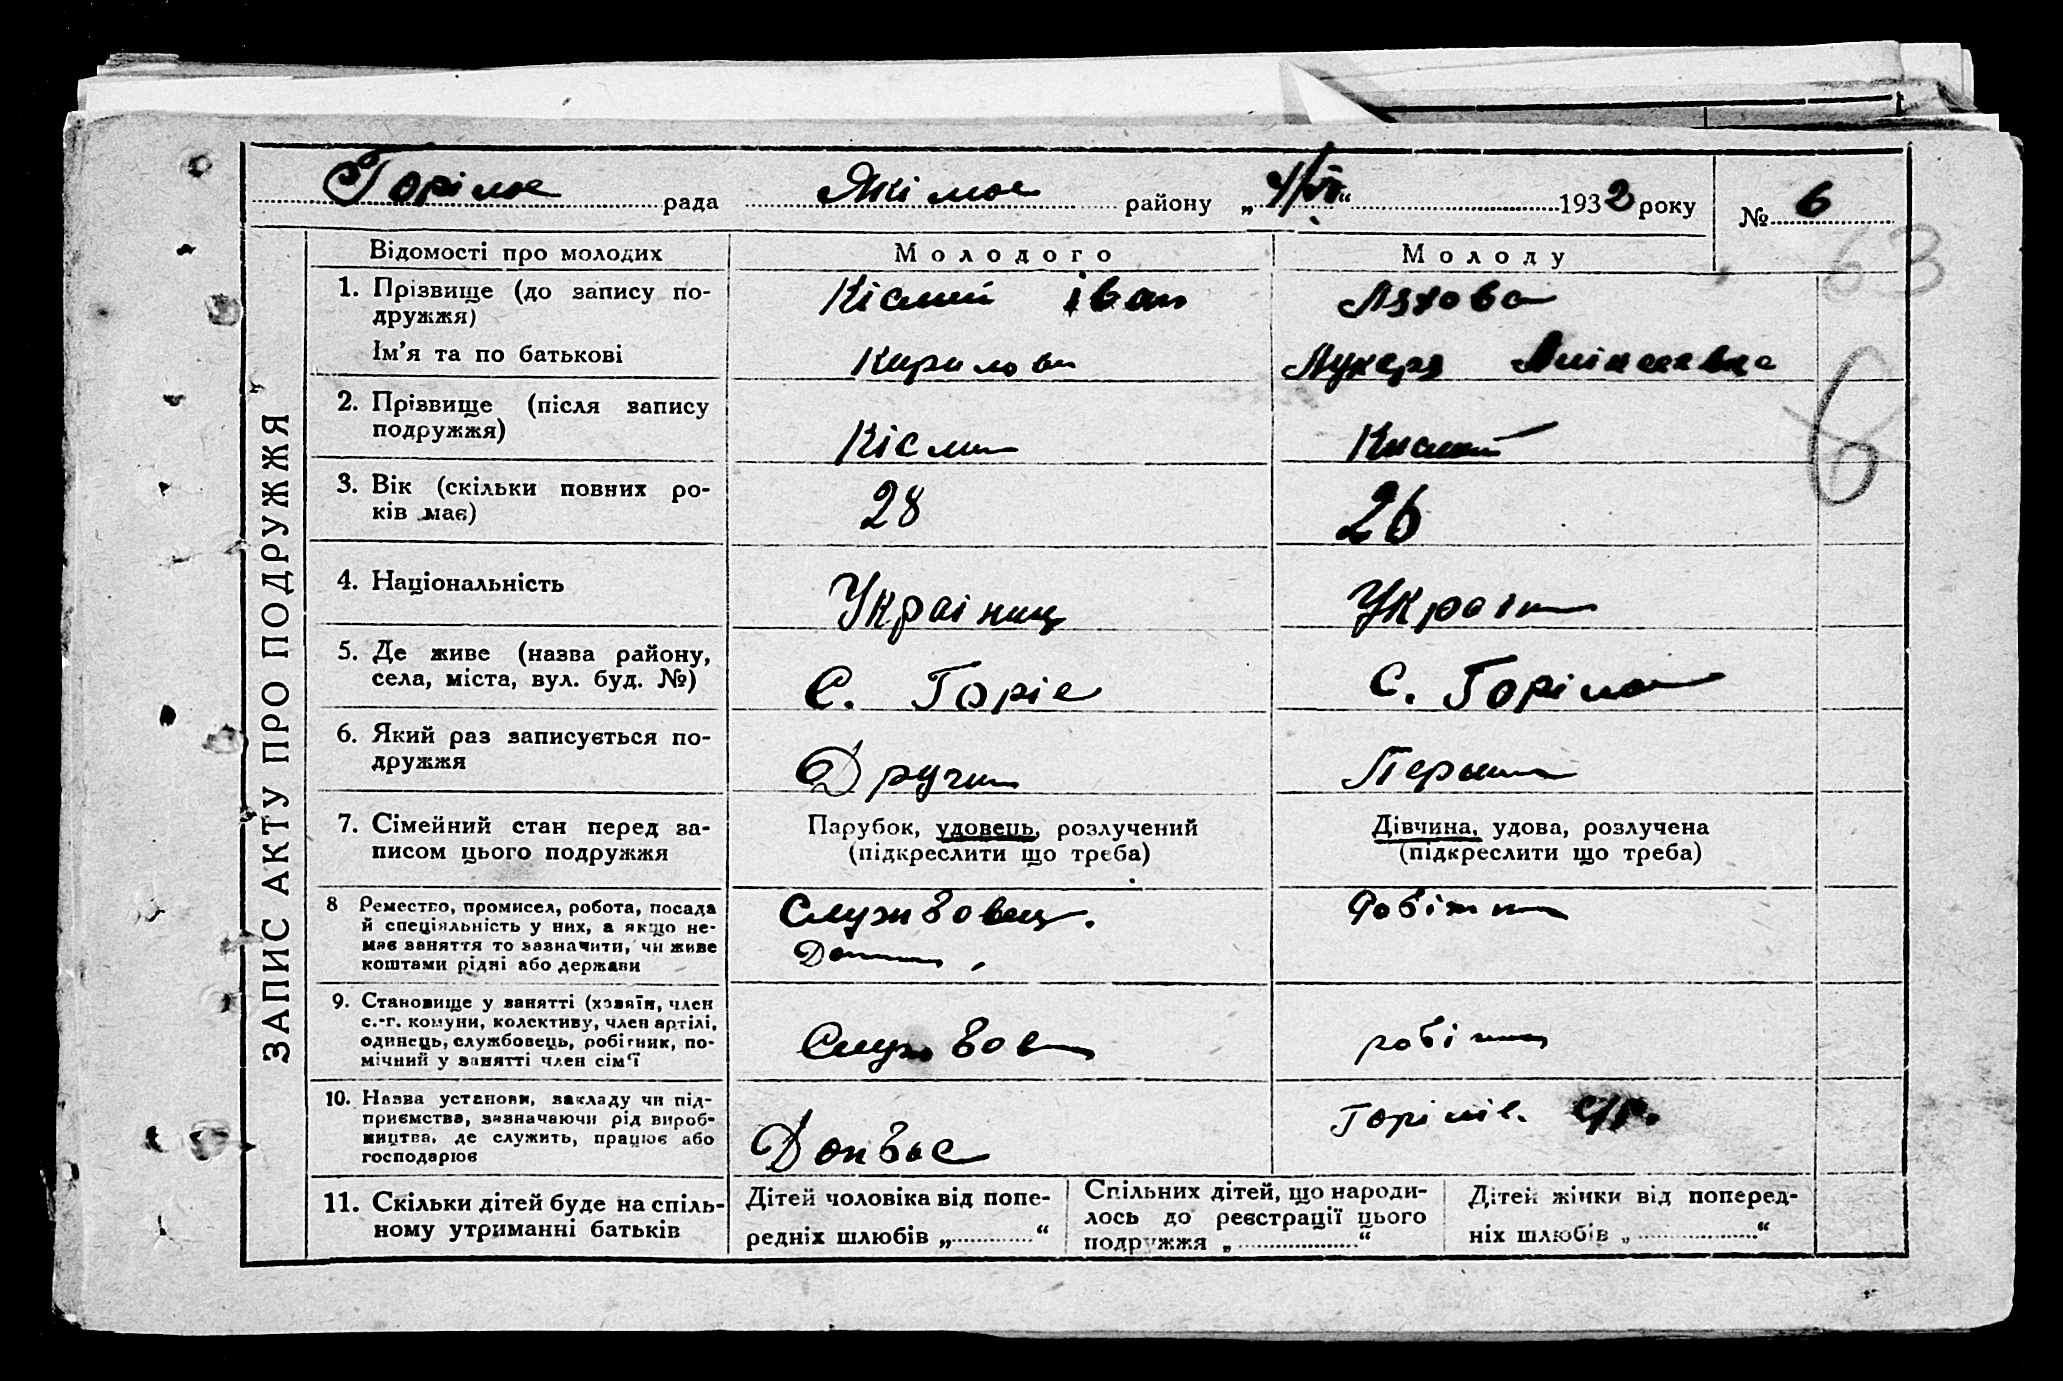 Горілое рада Якімов району „4/VI“ 1932 року № 6
63
ЗАПИС АКТУ ПРО ПОДРУЖЖЯ
Відомості про молодих Молодого Молоду
1. Прізвище (до запису по-
дружжя) Кісмий Іван Ляхова
Ім'я та по батькові Кирилови Лукеря
6
2. Прізвище (після запису
подружжя) Кісми Кисмий
3. Вік (скільки повних ро-
ків має) 28 26
4. Національність Українц Україн
5. Де живе (назва району,
села, міста, вул. буд. №) С. Горіє С. Горілов
6. Який раз записується по-
дружжя Други Перши
7. Сімейний стан перед за-
писом цього подружжя
Парубок, удовець, розлучений
(підкреслити що треба)
Дівчина, удова, розлучена
(підкреслити що треба)
8 Ремество, промисел, робота, посада
й спеціяльність у них, а якщо не-
має заняття то зазначити, чи живе
коштами рідні або держави
Службовец. Робітни
9. Становище у занятті (хазяїн, член
с.-г. комуни, колективу, член артілі,
одинець, службовець, робітник, по-
мічний у занятті член сім'ї
Службов робіниц
10. Назва установи, закладу чи під-
приємства, зазначаючи рід вироб-
ництва, де служить, працює або
господарює
Донбас Горілів. с/р.
11. Скільки дітей буде на спіль-
ному утриманні батьків
Дітей чоловіка від попе-
редніх шлюбів „ “
Спільних дітей, що народи-
лось до реєстрації цього
подружжя „ “
Дітей жінки від поперед-
ніх шлюбів „ “